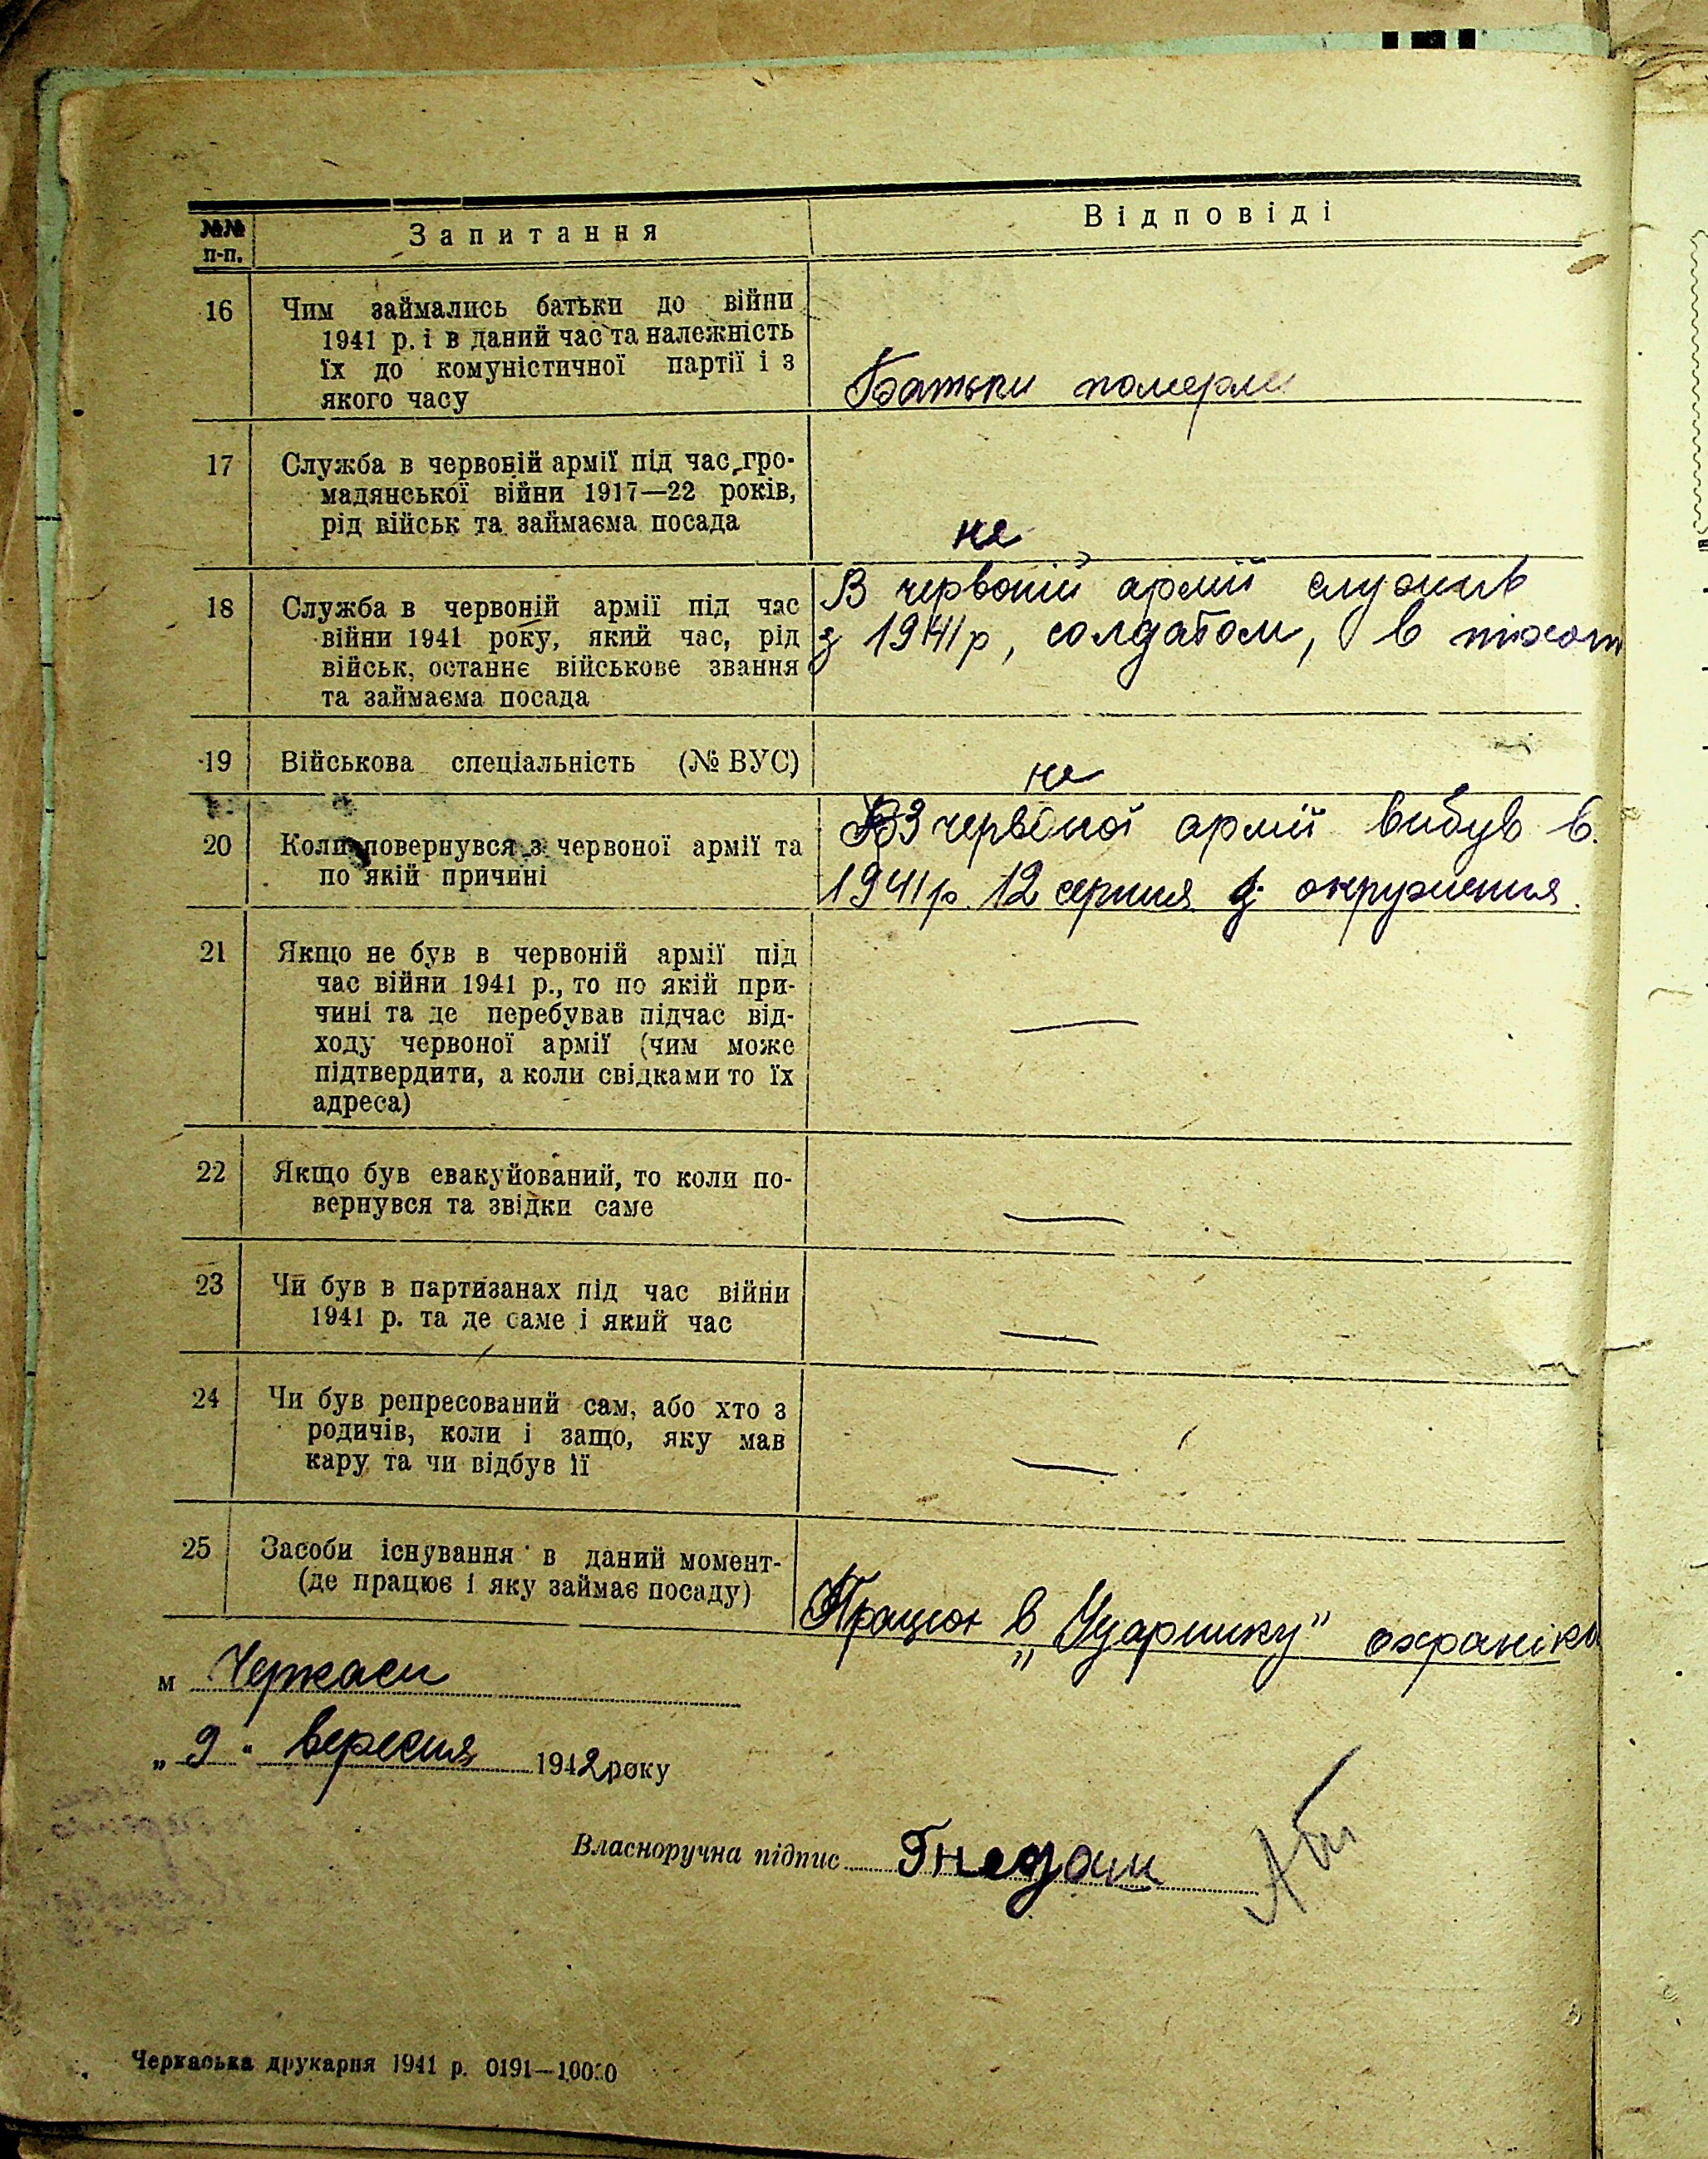 №№ п-п.
Запитання
Відповіді
16
Чим займались батьки до війни
1941 р. і в даний час та належність
їх до комуністичної партії і з
якого часу
Батьки померли
17
Служба в червоній армії під час гро-
мадянської війни 1917—22 років,
рід військ та займаєма посада
не
18
Служба в червоній армії під час
війни 1941 року, який час, рід
військ, останнє військове звання
та займаєма посада
В червоній армії служив
з 1941 р, солдатом, в піхот
19
Військова спеціальність (№ ВУС)
не
20
Коли повернувся з червоної армії та
по якій причині
З червоної армії вибув в
1941 р. 12 серпня з окруження.
21
Якщо не був в червоній армії під
час війни 1941 р., то по якій при-
чині та де перебував підчас від-
ходу червоної армії (чим може
підтвердити, а коли свідками то їх
адреса)
—
22
Якщо був евакуйований, то коли по-
вернувся та звідки саме
—
23
Чи був в партизанах під час війни
1941 р. та де саме і який час
—
24
Чи був репресований сам, або хто з
родичів, коли і защо, яку мав
кару та чи відбув її
—
25
Засоби існування в даний момент-
(де працює і яку займає посаду)
Працюю в „Ударнику" охраніко
м Черкаси
„ 9 " вересня 1942 року
Власноручна підпис Гнедаш
Черкаська друкарня 1941 р. 0191—10000